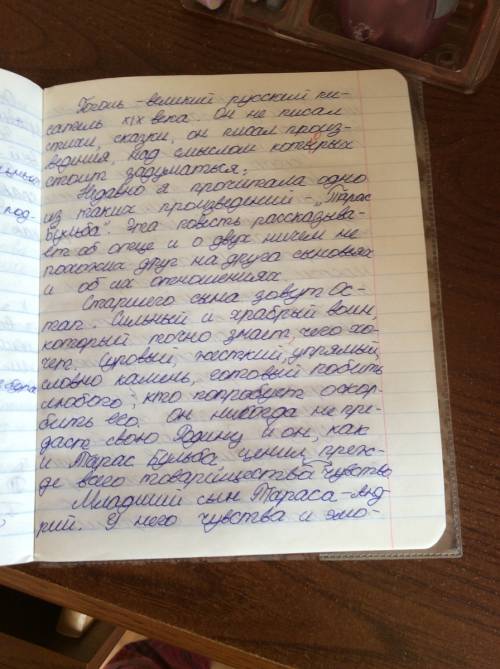 Гоголь - великий русский пи-
сатель XIX века. Он не писал
стихи, сказки, он писал произ-
ведения, над смыслом которых
стоит задуматься.
Недавно я прочитала одно
из таких произведений - „Тарас
Бульба". Эта повесть рассказыва-
ет об отце и о двух ничем не
похожих друг на друга сыновьях
и об их отношениях.
Старшего сына зовут Ос-
тап. Сильный и храбрый воин,
который точно знает, чего хо-
чет. Суровый, жесткий, упрямый,
словно камень, готовый побить
любого, кто попробует оскор-
бить его. Он никогда не пре-
даст свою Родину и он, как
и Тарас Бульба, ценил преж-
де всего товарищества чувство
Младший сын Тараса - Анд-
рий. У него чувства и эмо-
под-